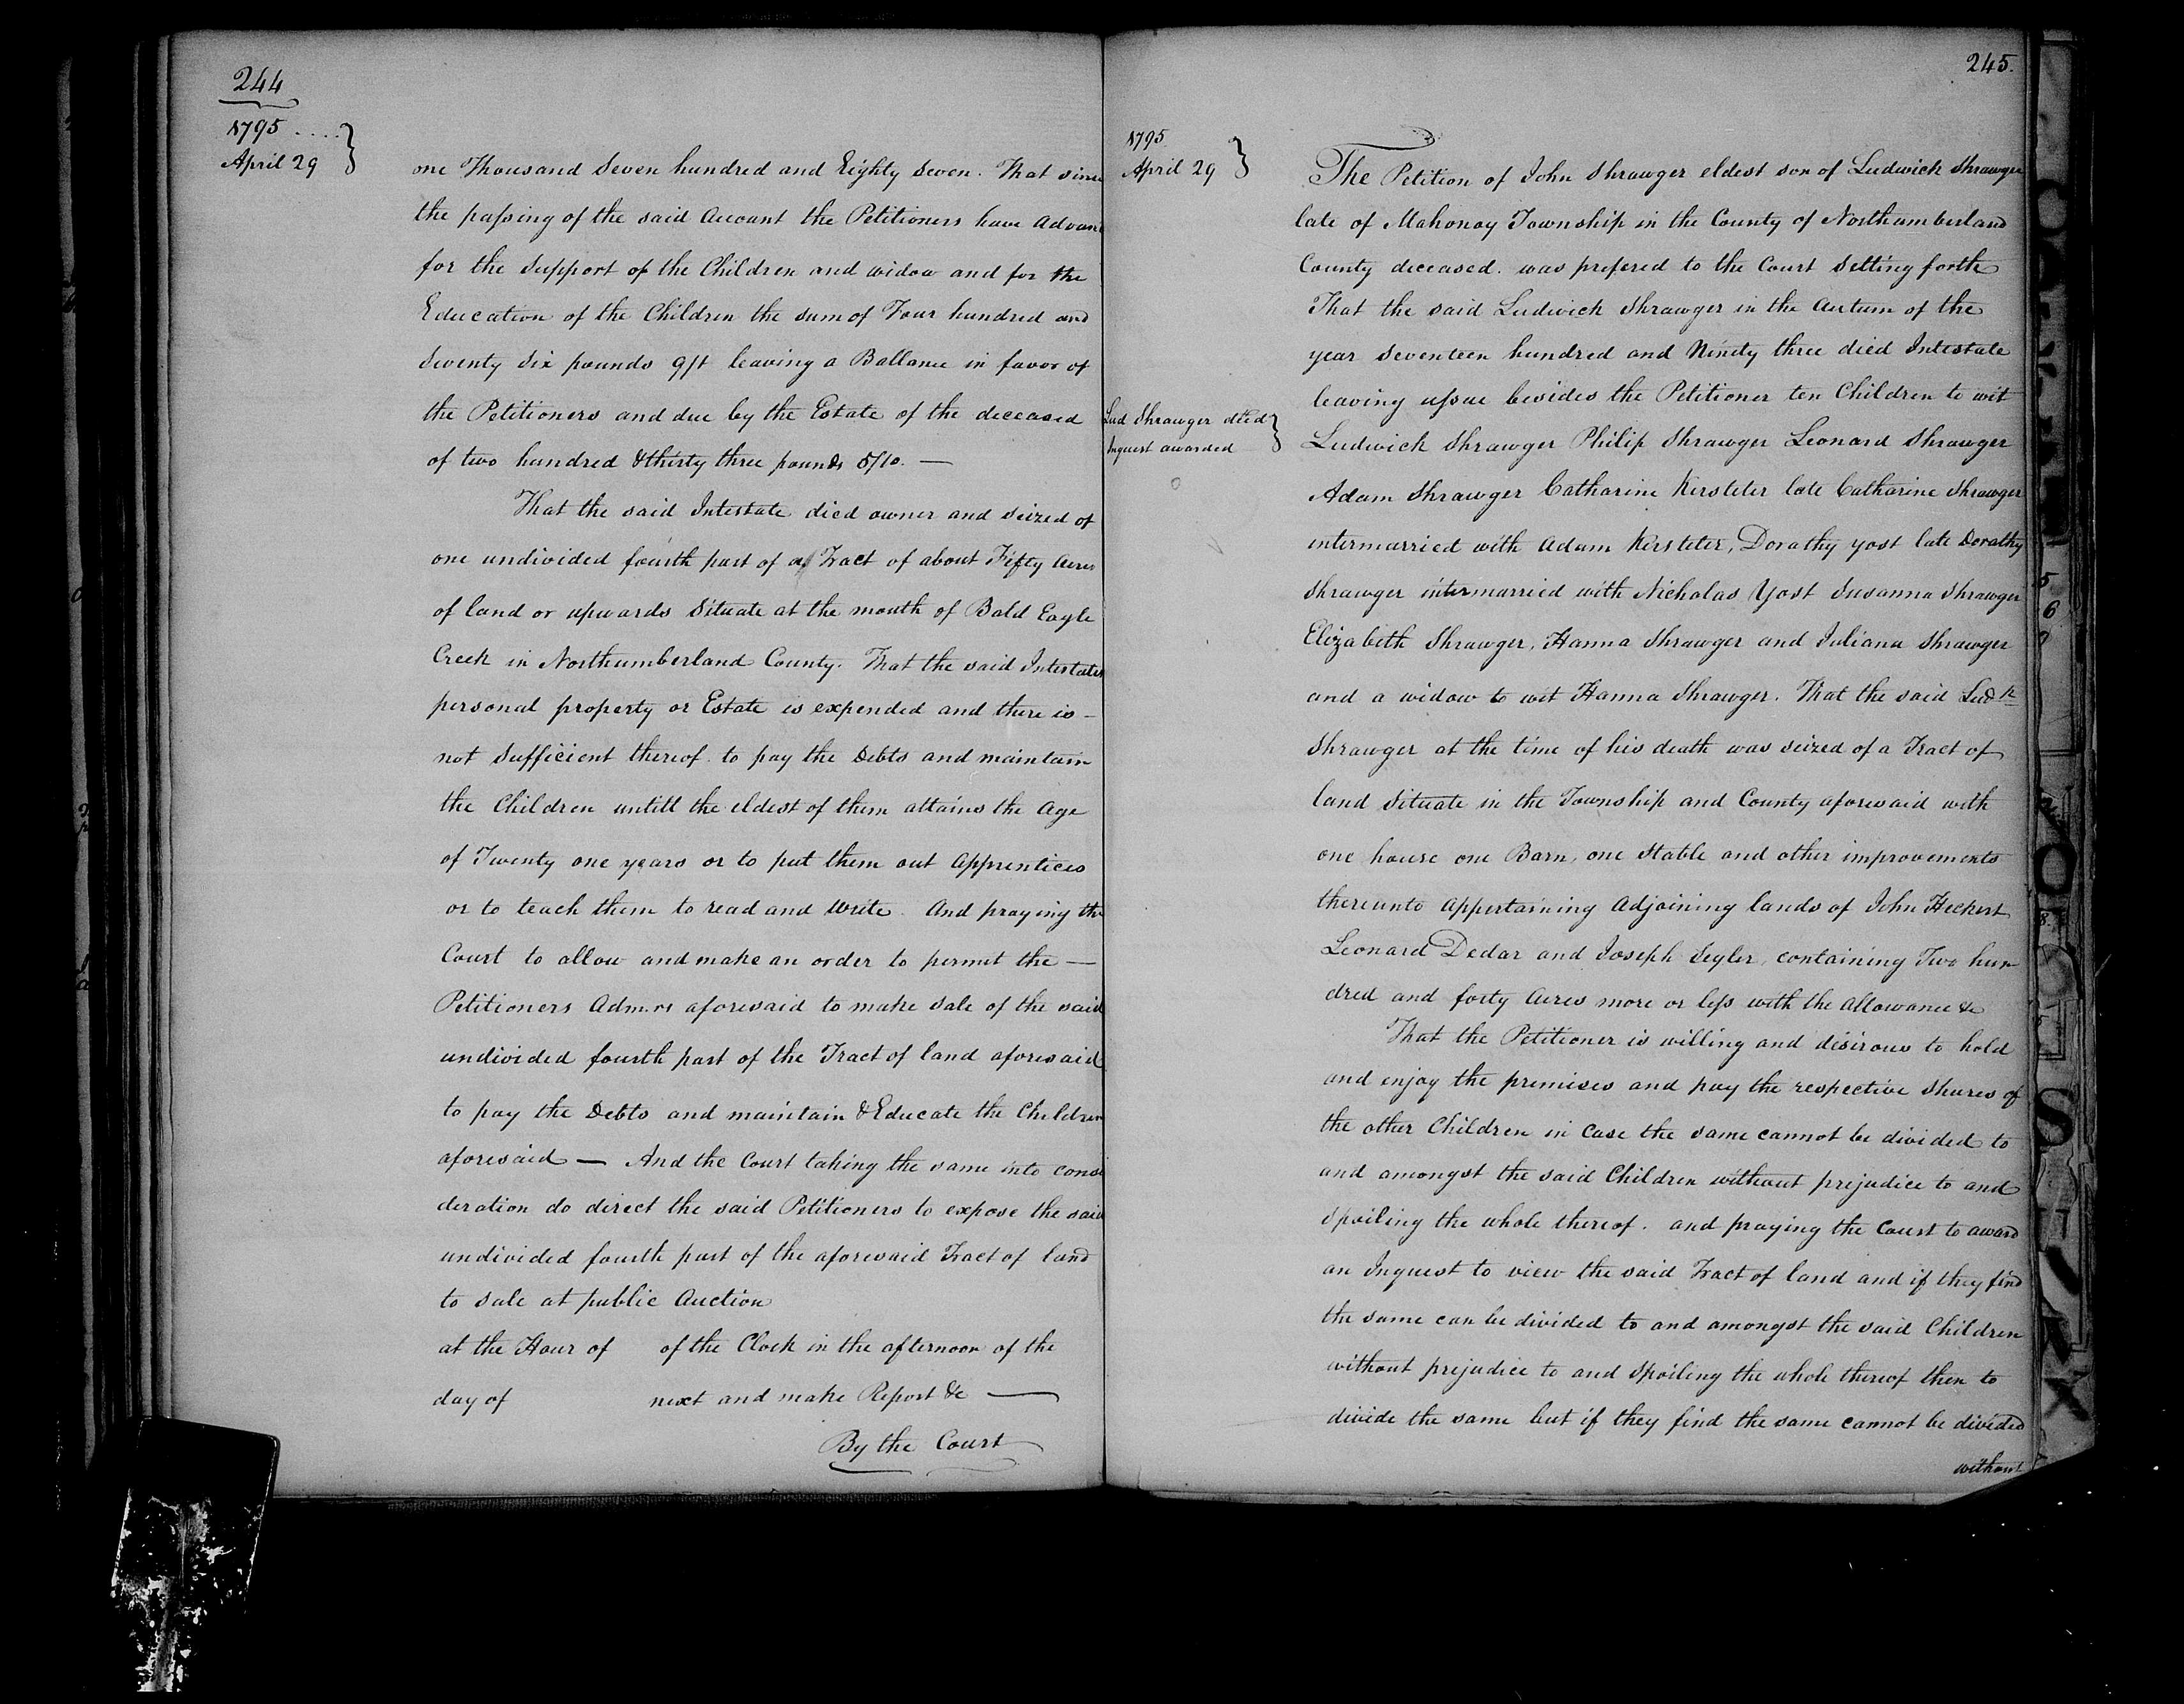 244
1795 ....
April 29
one Thousand Seven hundred and Eighty Seven. That since
the passing of the said Account the Petitioners have Advanc
for the Support of the Children and widow and for the
Education of the Children the sum of Four hundred and
Seventy Six pounds 9/1 leaving a Ballance in favor of
the Petitioners and due by the Estate of the deceased
of two hundred & thirty three pounds 5/10. —
That the said Intestate died owner and seized of
one undivided fourth part of a Tract of about Fifty Acres
of land or upwards Situate at the mouth of Bald Eagle
Creek in Northumberland County. That the said Intestates
personal property or Estate is expended and there is –
not Sufficient thereof to pay the Debts and maintain
the Children untill the eldest of them attains the Age
of Twenty one years or to put them out Apprentices
or to teach them to read and Write. And praying the
Court to allow and make an order to permit the —
Petitioners Adm.rs aforesaid to make Sale of the said
undivided fourth part of the Tract of land aforesaid
to pay the Debts and maintain & Educate the Children
aforesaid — And the Court taking the same into consi
deration do direct the said Petitioners to expose the said
undivided fourth part of the aforesaid Tract of land
to Sale at public Auction
at the Hour of of the Clock in the afternoon of the
day of next and make Report &c —
By the Court
245.
1795
April 29
The Petition of John Shrawger eldest son of Ludwick Shrawger
late of Mahonoy Township in the County of Northumberland
County deceased. was prefered to the Court Setting forth
That the said Ludwick Shrawger in the Autum of the
year Seventeen hundred and Ninety three died Intestate
leaving issue besides the Petitioner ten Children to wit
Lud Shrawger dec'd
Inquest awarded
Ludwick Shrawger Philip Shrawger Leonard Shrawger
Adam Shrawger Catharine Kersteter late Catharine Shrawger
intermarried with Adam Kersteter, Dorathy Yost late Dorathy
Shrawger intermarried with Nicholas Yost Susanna Shrawger
Elizabeth Shrawger, Hanna Shrawger and Juliana Shrawger
and a widow to wit Hanna Shrawger. That the said Ludk
Shrawger at the time of his death was seized of a Tract of
land Situate in the Township and County aforesaid with
one house one Barn, one Stable and other improvements
thereunto Appertaining Adjoining lands of John Heckert
Leonard Dedar and Joseph Segler, containing Two hun
dred and forty Acres more or less with the Allowance &c
That the Petitioner is willing and desirous to hold
and enjoy the premises and pay the respective Shares of
the other Children in Case the same cannot be divided to
and amongst the said Children without prejudice to and
Spoiling the whole thereof. and praying the Court to award
an Inquest to view the said Tract of land and if they find
the same can be divided to and amongst the said Children
without prejudice to and Spoiling the whole thereof then to
divide the same but if they find the same cannot be divided
without